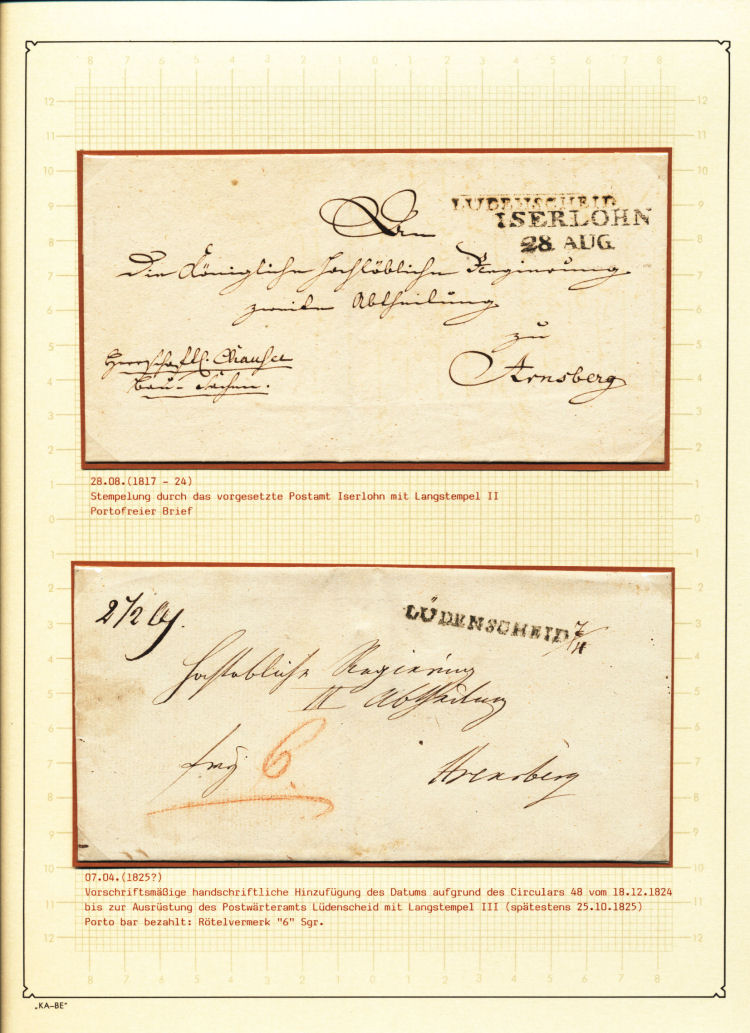 8 7 6 5 4 3 2 1 0 1 2 3 4 5 6 7 8
12 12
11 11
10 10
9 9
LUDENSCHEID
ISERLOHN
28 AUG.
An
Die Königliche hochlöbliche Regierung
zweite Abtheilung
zu
Arnsberg
Herrschaftl. Chaussee
bau-Sachen.
28.08.(1817 - 24)
Stempelung durch das vorgesetzte Postamt Iserlohn mit Langstempel II
Portofreier Brief
2 1/2
LÜDENSCHEID 7/4
Hochlöbliche Regierung
II Abtheilung
6
Arensberg
07.04.(1825?)
Vorschriftsmäßige handschriftliche Hinzufügung des Datums aufgrund des Circulars 48 vom 18.12.1824
bis zur Ausrüstung des Postwärteramts Lüdenscheid mit Langstempel III (spätestens 25.10.1825)
Porto bar bezahlt: Rötelvermerk "6" Sgr.
12 12
8 7 6 5 4 3 2 1 0 1 2 3 4 5 6 7 8
„KA–BE"